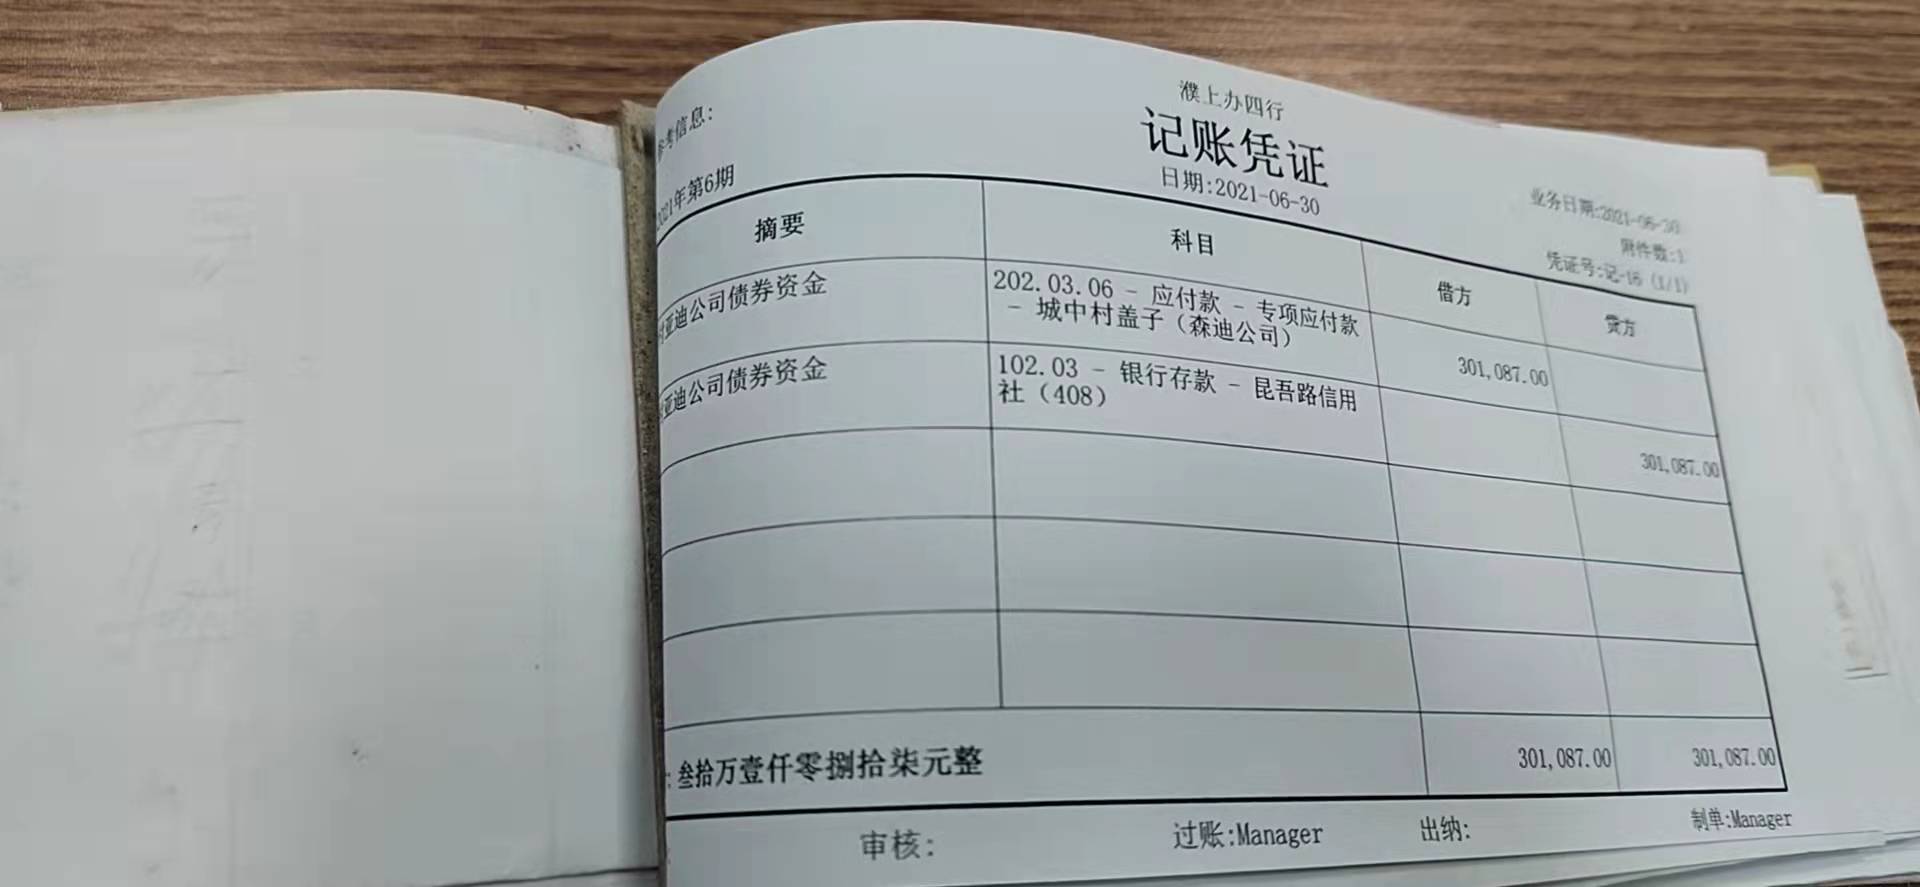 濮上办四行
记账凭证
参考信息:
日期:2021-06-30
业务日期:2021-06-30
2021年第6期
附件数:1
凭证号:记-16 (1/1)
摘要 科目 借方 贷方
亚迪公司债券资金 202.03.06 - 应付款 - 专项应付款 301,087.00
- 城中村盖子（森迪公司）
亚迪公司债券资金 102.03 - 银行存款 - 昆吾路信用 301,087.00
社（408）
: 叁拾万壹仟零捌拾柒元整 301,087.00 301,087.00
审核: 过账:Manager 出纳: 制单:Manager